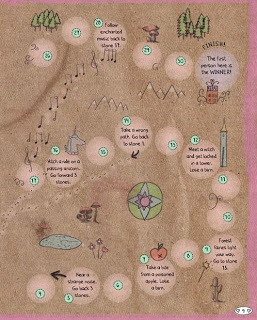 28
Follow
enchanted
music back to
stone 17.
27
26
29
30
FINISH!
The first
person here is
the WINNER!
14
Take a wrong
path. Go back
to stone 1.
13
12
Meet a witch
and get locked
in a tower.
Lose a turn.
16
Hitch a ride on a
passing unicorn.
Go forward 3
stones.
15
17
11
10
9
Forest
fairies light
your way.
Go to stone
15.
8
7
Take a bite
from a poisoned
apple. Lose
a turn.
6
5
Hear a
strange noise.
Go back 3
stones.
4